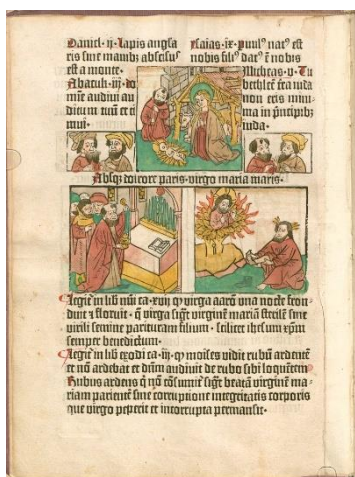 Daniel·ij·Lapis angla
ris sine manibꝫ abscisus
est a monte·
Abacuh·iij·do
mīe audiui au
ditum tuū et ti
mui·
ysaias·ix·puulꝰ natꝰ est
nobis filiꝰ datꝰ ē nobis
Micheas·v·Tu
bethleē tra iuda
non eris mini
ma in pncipibꝫ
iuda·
Absqꝫ dolore paris·virgo maria maris·
Legit͛ in lib nūi ca·xvij q virga aarō una nocte fron
duit et floruit·q virga sigt virginē mariā sterilē sine
virili semine parituram filium·scilicet ihsum xpm
semper benedictum·
Legit͛ in lib exodi ca·iij·q moises vidit rubū ardentē
et nō ardebat et dnm audiuit de rubo sibi loquentem
Rubus ardens q nō cōsumit͛ sigt beatā virginē ma-
riam parientē sine corruptione integritatis corporis
que virgo peperit et incorrupta permansit·